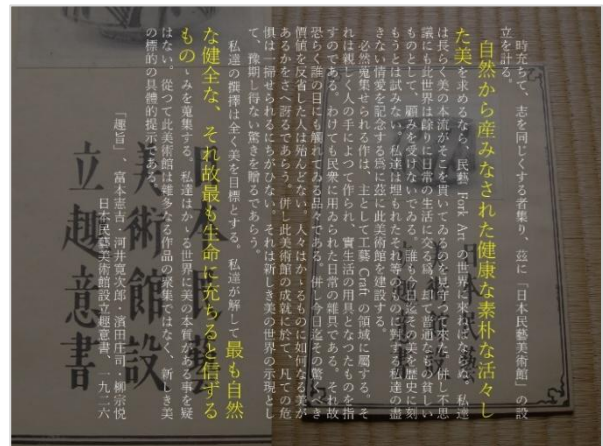 時充ちて、志を同じくする者集り、茲に「日本民藝美術館」の設
立を計る。
自然から産みなされた健康な素朴な活々し
た美を求めるなら、民藝 Fork Art の世界に來ねばならぬ。私達
は長らく美の本流がそこを貫いてゐるのを見守つて來た。併し不思
議にも此世界は餘りに日常の生活に交る爲、却て普通なもの貧しい
ものとして、顧みを受けないでゐる。誰も今日迄その美を歴史に刻
もうとは試みない。私達は埋もれたそれ等のものに對する私達の盡
きない情愛を記念する爲に茲に此美術館を建設する。
必然蒐集せられる作は、主として工藝 Craft の領域に屬する。そ
れは親しく人の手によつて作られ、實生活の用具となつたものを指
すのである。わけても民衆に用ゐられた日常の雜具である。それ故
恐らく誰の目にも觸れてゐる品々である。併し今日迄その驚くべき
價値を反省した人は殆どない。人々はかゝるものに如何なる美が
あるかをさへ訝るであらう。併し此美術館の成就に於て、凡ての危
惧は一掃せられるにちがひない。それは新しき美の世界の示現とし
て、豫期し得ない驚きを贈るであらう。
私達の撰擇は全く美を目標とする。私達が解して最も自然
な健全な、それ故最も生命に充ちると信ずる
ものゝみを蒐集する。私達はかゝる世界に美の本質がある事を疑
はない。從つて此美術館は雜多なる作品の聚集ではなく、新しき美
の標的の具體的提示である。
「趣旨」、富本憲吉・河井寛次郎・濱田庄司・柳宗悦
日本民藝美術館設立趣意書、一九二六
美術館設
立趣意書